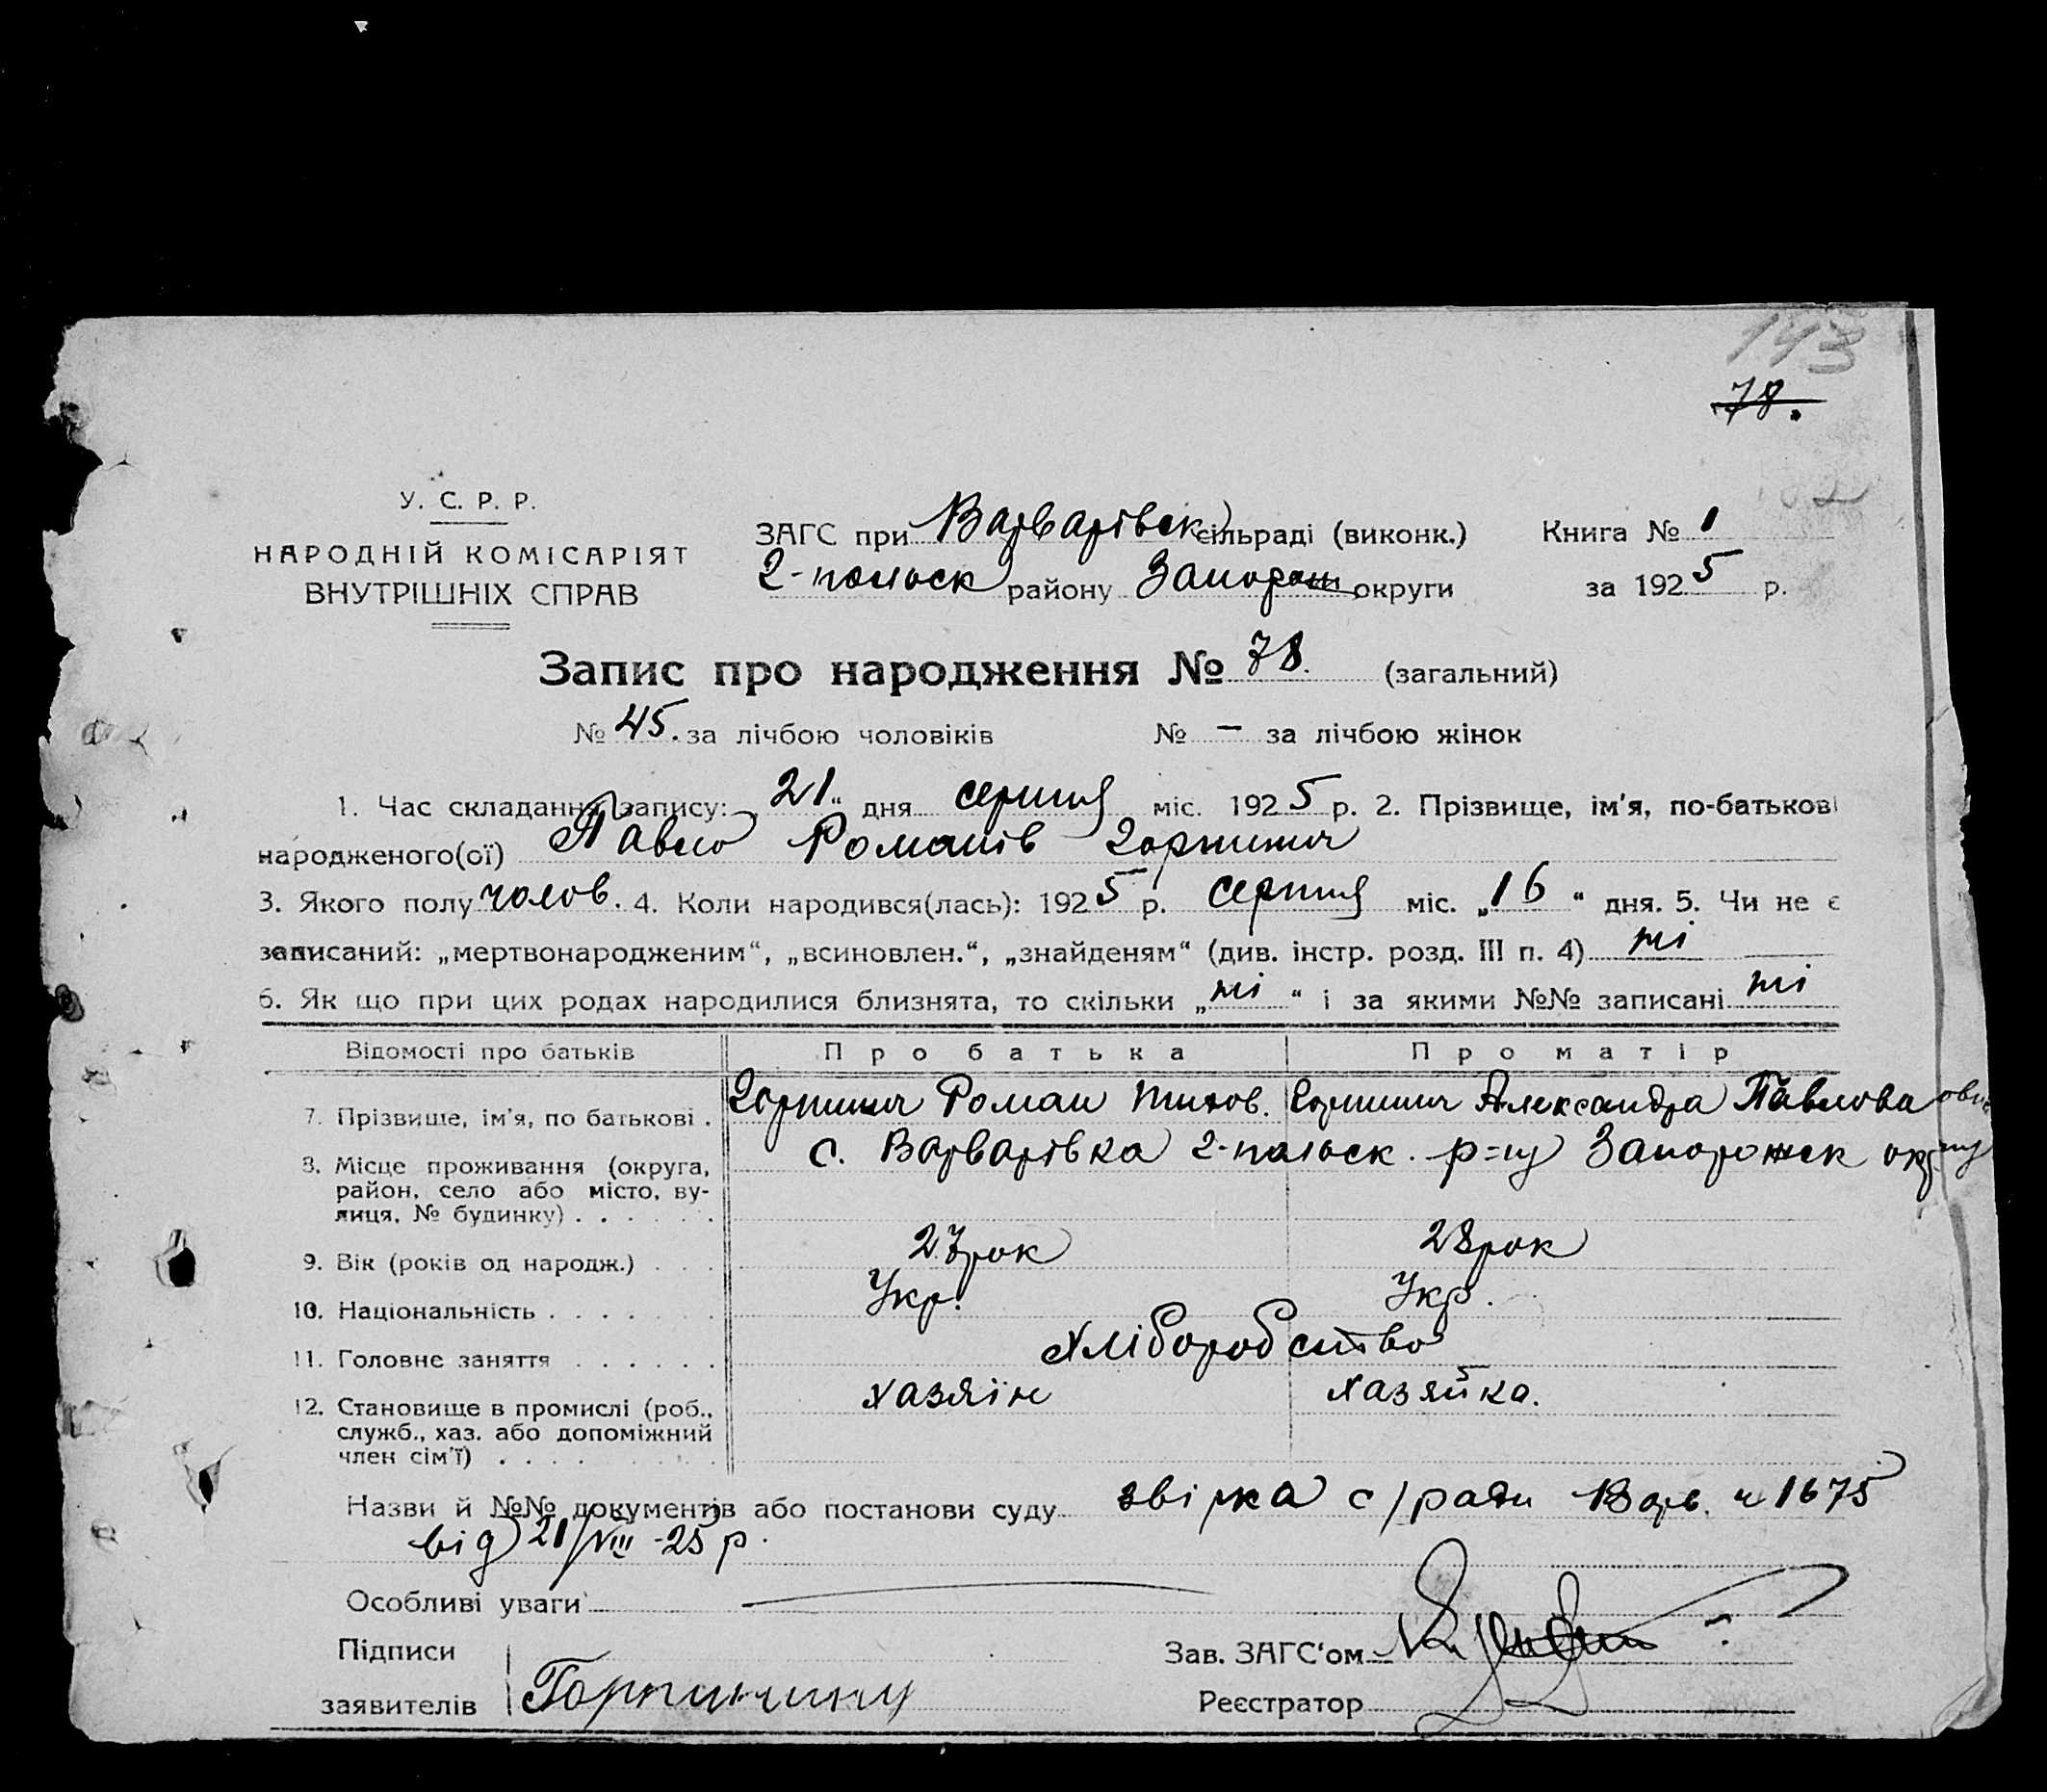 143
78.
У. С. Р. Р.
НАРОДНІЙ КОМІСАРІЯТ
ВНУТРІШНІХ СПРАВ
ЗАГС при Варварівск сільраді (виконк.) Книга № 1
2-польск району Запорож округи за 1925 р.
Запис про народження № 78. (загальний)
№ 45. за лічбою чоловіків № — за лічбою жінок
1. Час складання запису: 21 " дня серпня міс. 1925 р. 2. Прізвище, ім'я, по-батькові
народженого(ої) Павло Романів Горпинич
3. Якого полу чолов. 4. Коли народився(лась): 1925 р. серпня міс. „16 “ дня. 5. Чи не є
записаний: „мертвонародженим“, „всиновлен.“, „знайденям“ (див. інстр. розд. III п. 4) ні
6. Як що при цих родах народилися близнята, то скільки „ні “ і за якими №№ записані ні
Відомості про батьків Про батька Про матір
7. Прізвище, ім'я, по батькові . Горпинич Роман Тихов. Горпинич Александра Павлова
8. Місце проживання (округа, с. Варварівка 2-польск. р-ну Запорожск округу
район, село або місто, ву-
лиця, № будинку) . . . . . .
9. Вік (років од народж.) . . . 27 рок 28 рок
10. Національність . . . . . . . Укр. Укр.
11. Головне заняття . . . . . . Хліборобство
12. Становище в промислі (роб., хазяїн хазяйка.
служб., хаз. або допоміжний
член сім'ї) . . . .
Назви й №№ документів або постанови суду звірка с/ради Варв. н 1675
від 21/VIII-25 р.
Особливі уваги
Підписи Зав. ЗАГС‘ом
заявителів Реєстратор